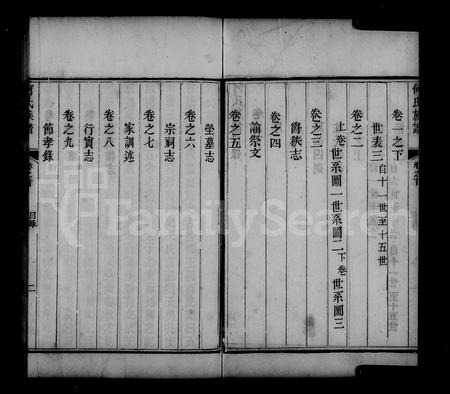 何氏族譜
卷一之下
世表三 自十一世至十五世
卷之二
上卷世系圖一世系圖二下卷世系圖三
卷之三
誥秩志
卷之四
諭祭文
卷之五
塋墓志
卷之六
宗祠志
卷之七
家訓述
卷之八
行實志
卷之九
節孝錄
何氏族譜
目錄
二
FamilySearch